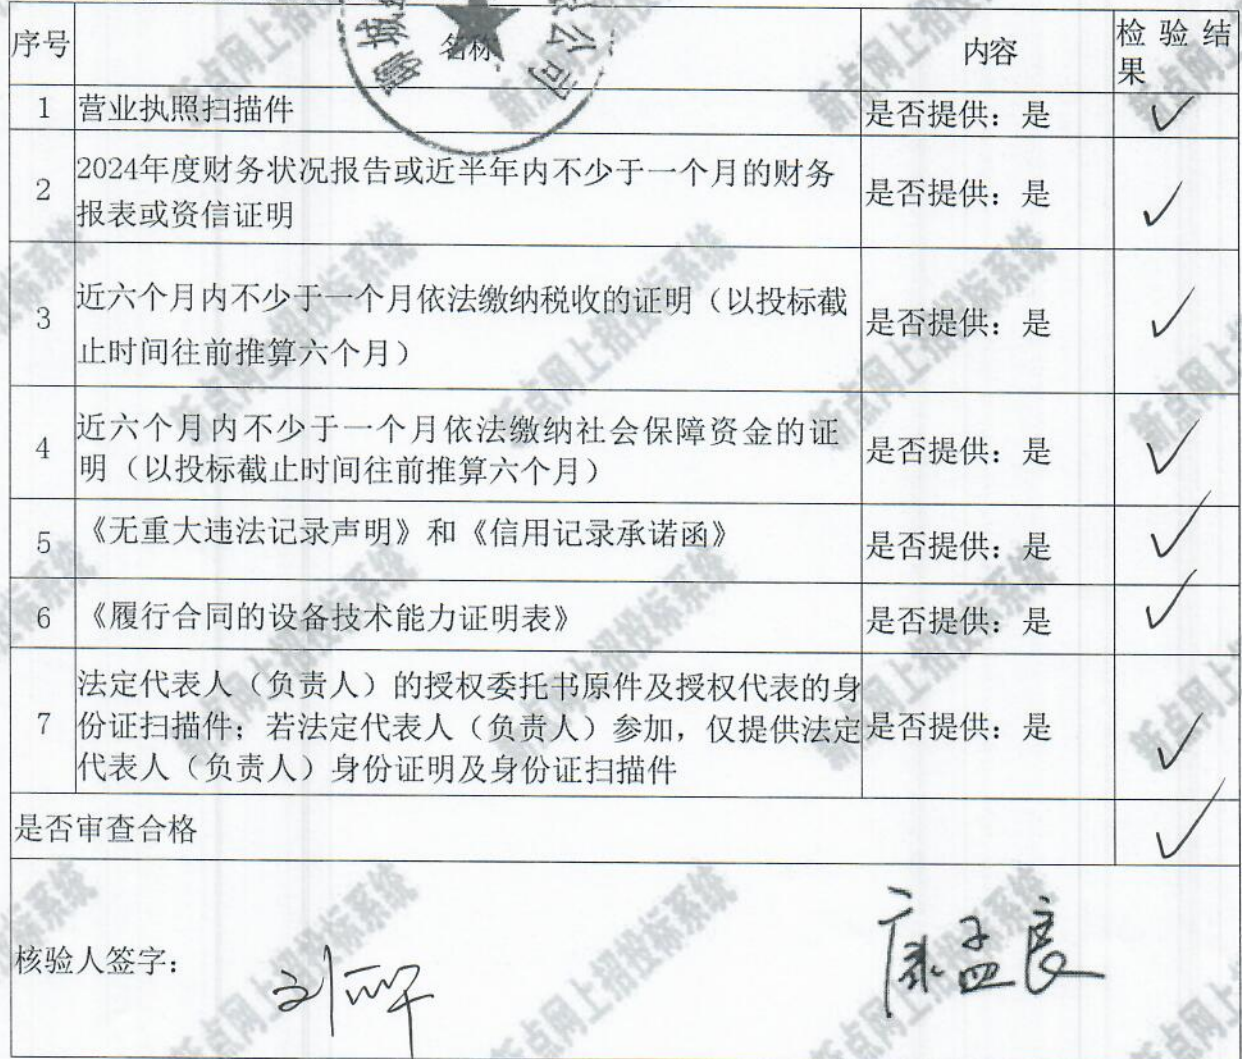 序号 名称 内容 检验结
果
1 营业执照扫描件 是否提供：是 ✓
2 2024年度财务状况报告或近半年内不少于一个月的财务
报表或资信证明 是否提供：是 ✓
3 近六个月内不少于一个月依法缴纳税收的证明（以投标截
止时间往前推算六个月） 是否提供：是 ✓
4 近六个月内不少于一个月依法缴纳社会保障资金的证
明（以投标截止时间往前推算六个月） 是否提供：是 ✓
5 《无重大违法记录声明》和《信用记录承诺函》 是否提供：是 ✓
6 《履行合同的设备技术能力证明表》 是否提供：是 ✓
7 法定代表人（负责人）的授权委托书原件及授权代表的身
份证扫描件；若法定代表人（负责人）参加，仅提供法定
代表人（负责人）身份证明及身份证扫描件 是否提供：是 ✓
是否审查合格 ✓
核验人签字： 康孟良
新点网上招投标系统
公司